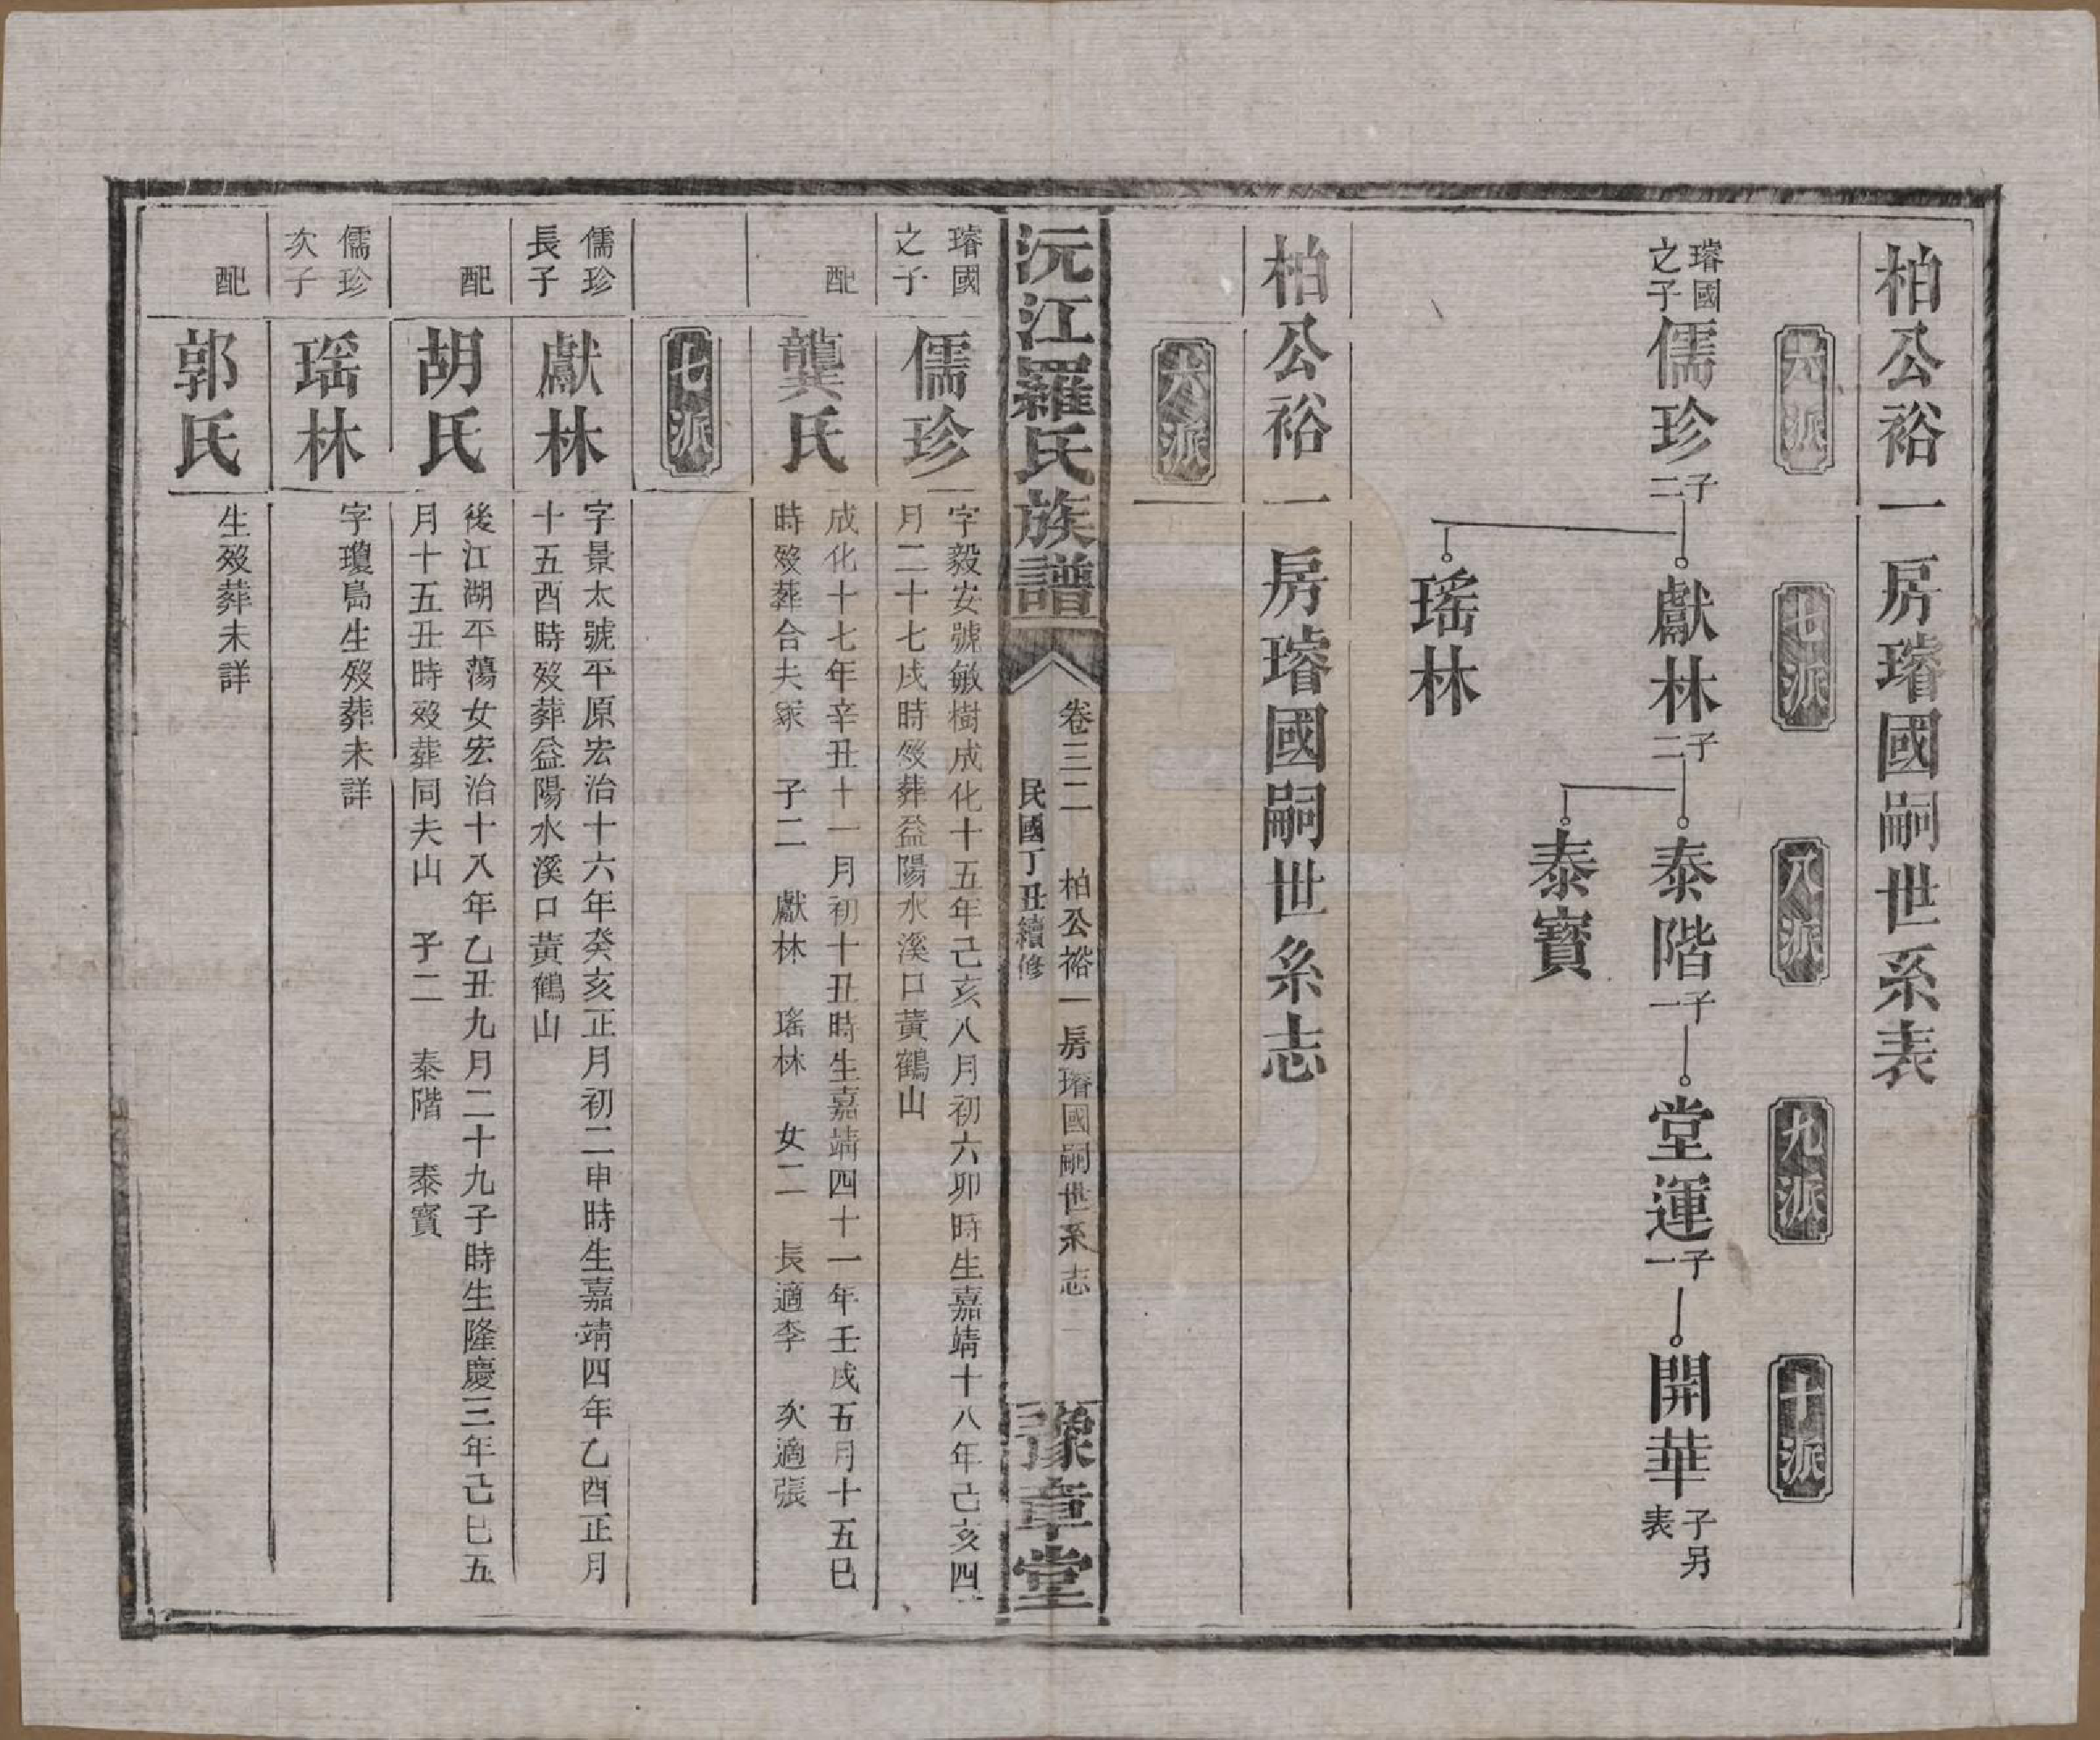 柏公裕一房璿國嗣世系表
六派
七派
八派
九派
十派
璿國
之子
儒珍
子二
獻林
子二
泰階
子一
堂運
子一
開華
子另
表
泰寶
瑤林
柏公裕一房璿國嗣世系志
六派
沅江羅氏族譜
卷三二 柏公裕一房璿國嗣世系志 一
民國丁丑續修
豫章堂
璿國
之子
儒珍
字毅安號敏樹成化十五年己亥八月初六卯時生嘉靖十八年己亥四
月二十七戌時歿葬益陽水溪口黃鶴山
配
龔氏
成化十七年辛丑十一月初十丑時生嘉靖四十一年壬戌五月十五巳
時歿葬合夫冢 子二 獻林 瑤林 女二 長適李 次適張
七派
儒珍
長子
獻林
字景太號平原宏治十六年癸亥正月初二申時生嘉靖四年乙酉正月
十五酉時歿葬益陽水溪口黃鶴山
配
胡氏
後江湖平蕩女宏治十八年乙丑九月二十九子時生隆慶三年己巳五
月十五丑時歿葬同夫山 子二 泰階 泰寶
儒珍
次子
瑤林
字瓊島生歿葬未詳
配
郭氏
生歿葬未詳